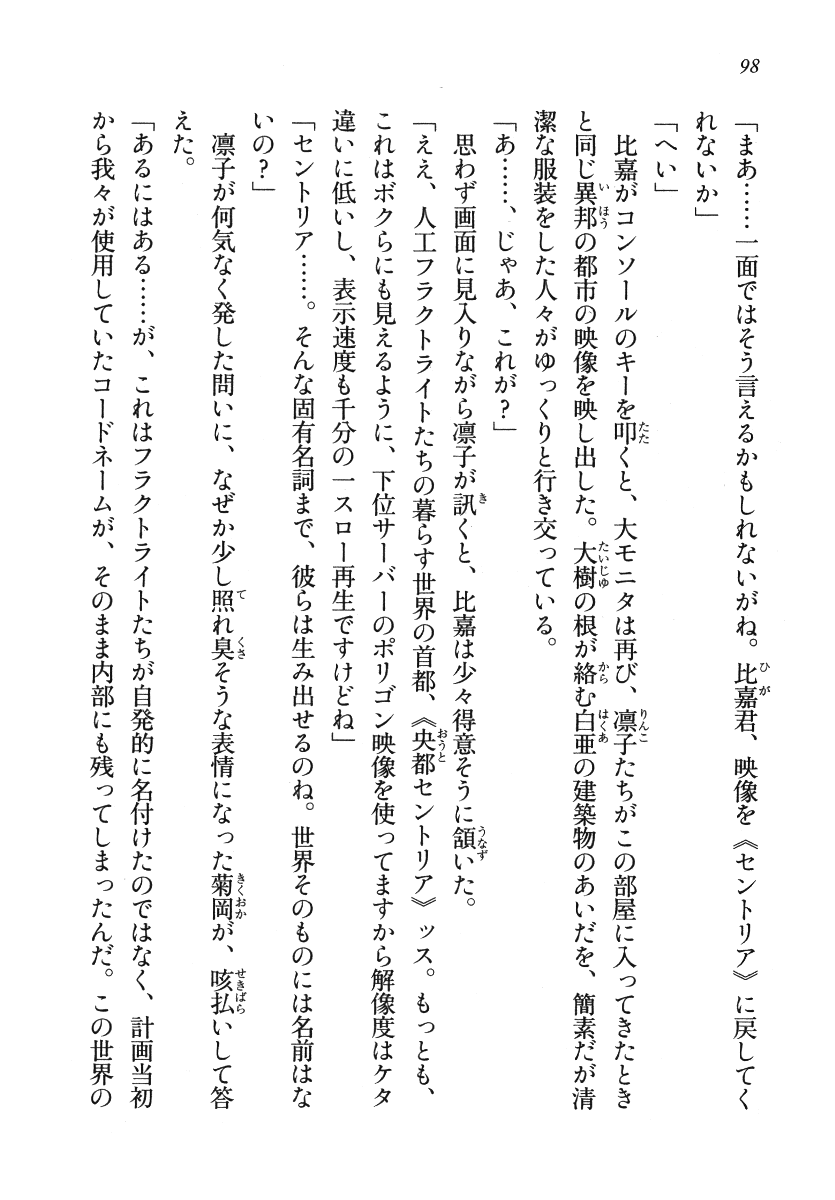 98
「まあ……一面ではそう言えるかもしれないがね。比嘉君、映像を《セントリア》に戻してく
れないか」
「へい」
　比嘉がコンソールのキーを叩くと、大モニタは再び、凛子たちがこの部屋に入ってきたとき
と同じ異邦の都市の映像を映し出した。大樹の根が絡む白亜の建築物のあいだを、簡素だが清
潔な服装をした人々がゆっくりと行き交っている。
「あ……、じゃあ、これが？」
　思わず画面に見入りながら凛子が訊くと、比嘉は少々得意そうに頷いた。
「ええ、人工フラクトライトたちの暮らす世界の首都、《央都セントリア》ッス。もっとも、
これはボクらにも見えるように、下位サーバーのポリゴン映像を使ってますから解像度はケタ
違いに低いし、表示速度も千分の一スロー再生ですけどね」
「セントリア……。そんな固有名詞まで、彼らは生み出せるのね。世界そのものには名前はな
いの？」
　凛子が何気なく発した問いに、なぜか少し照れ臭そうな表情になった菊岡が、咳払いして答
えた。
「あるにはある……が、これはフラクトライトたちが自発的に名付けたのではなく、計画当初
から我々が使用していたコードネームが、そのまま内部にも残ってしまったんだ。この世界の